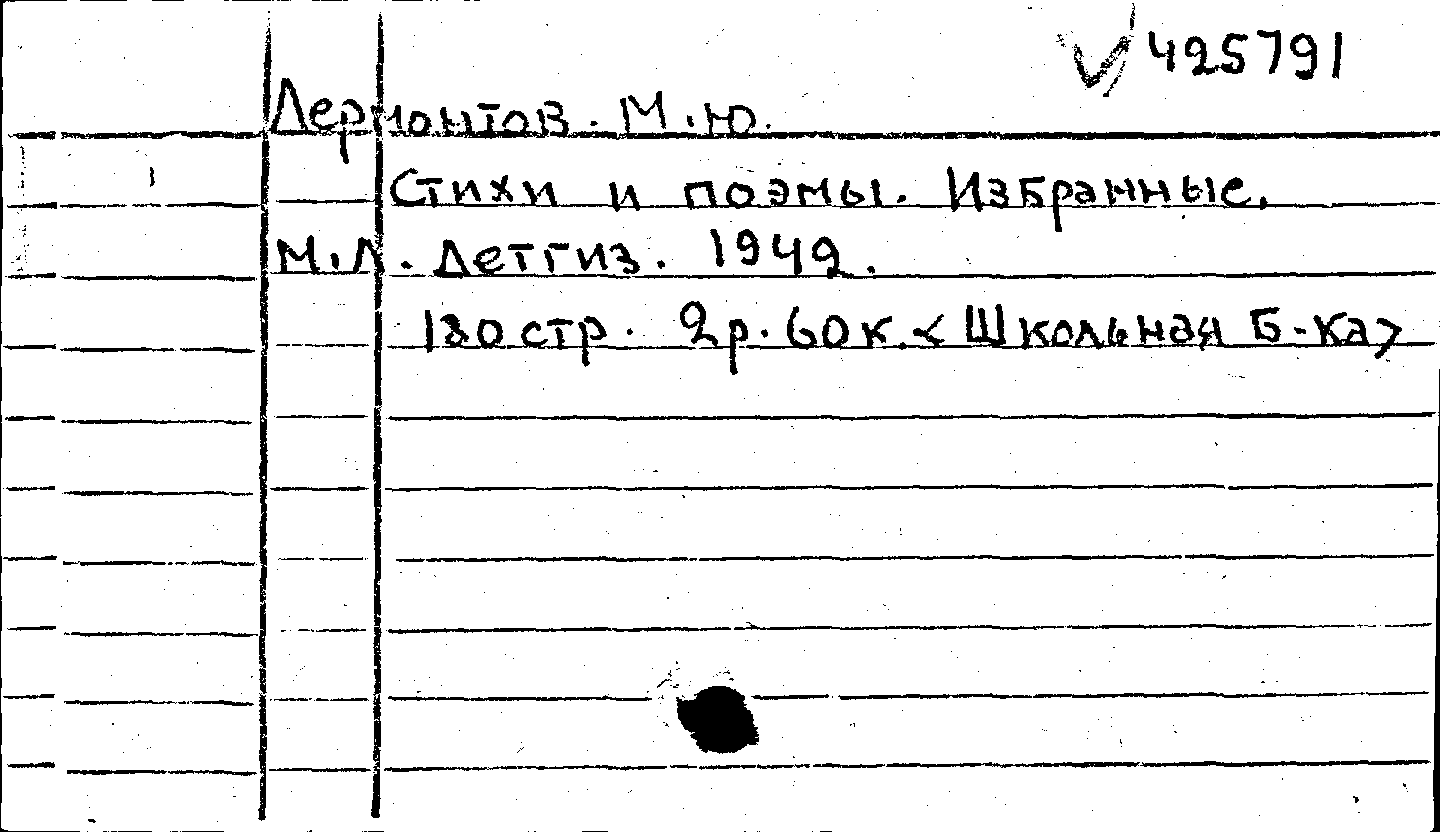 425791
Лермонтов. М.Ю.
Стихи и поэмы. Избранные.
М.Л. Детгиз. 1942.
180 стр. 2р. 60к. <Школьная Б-ка>